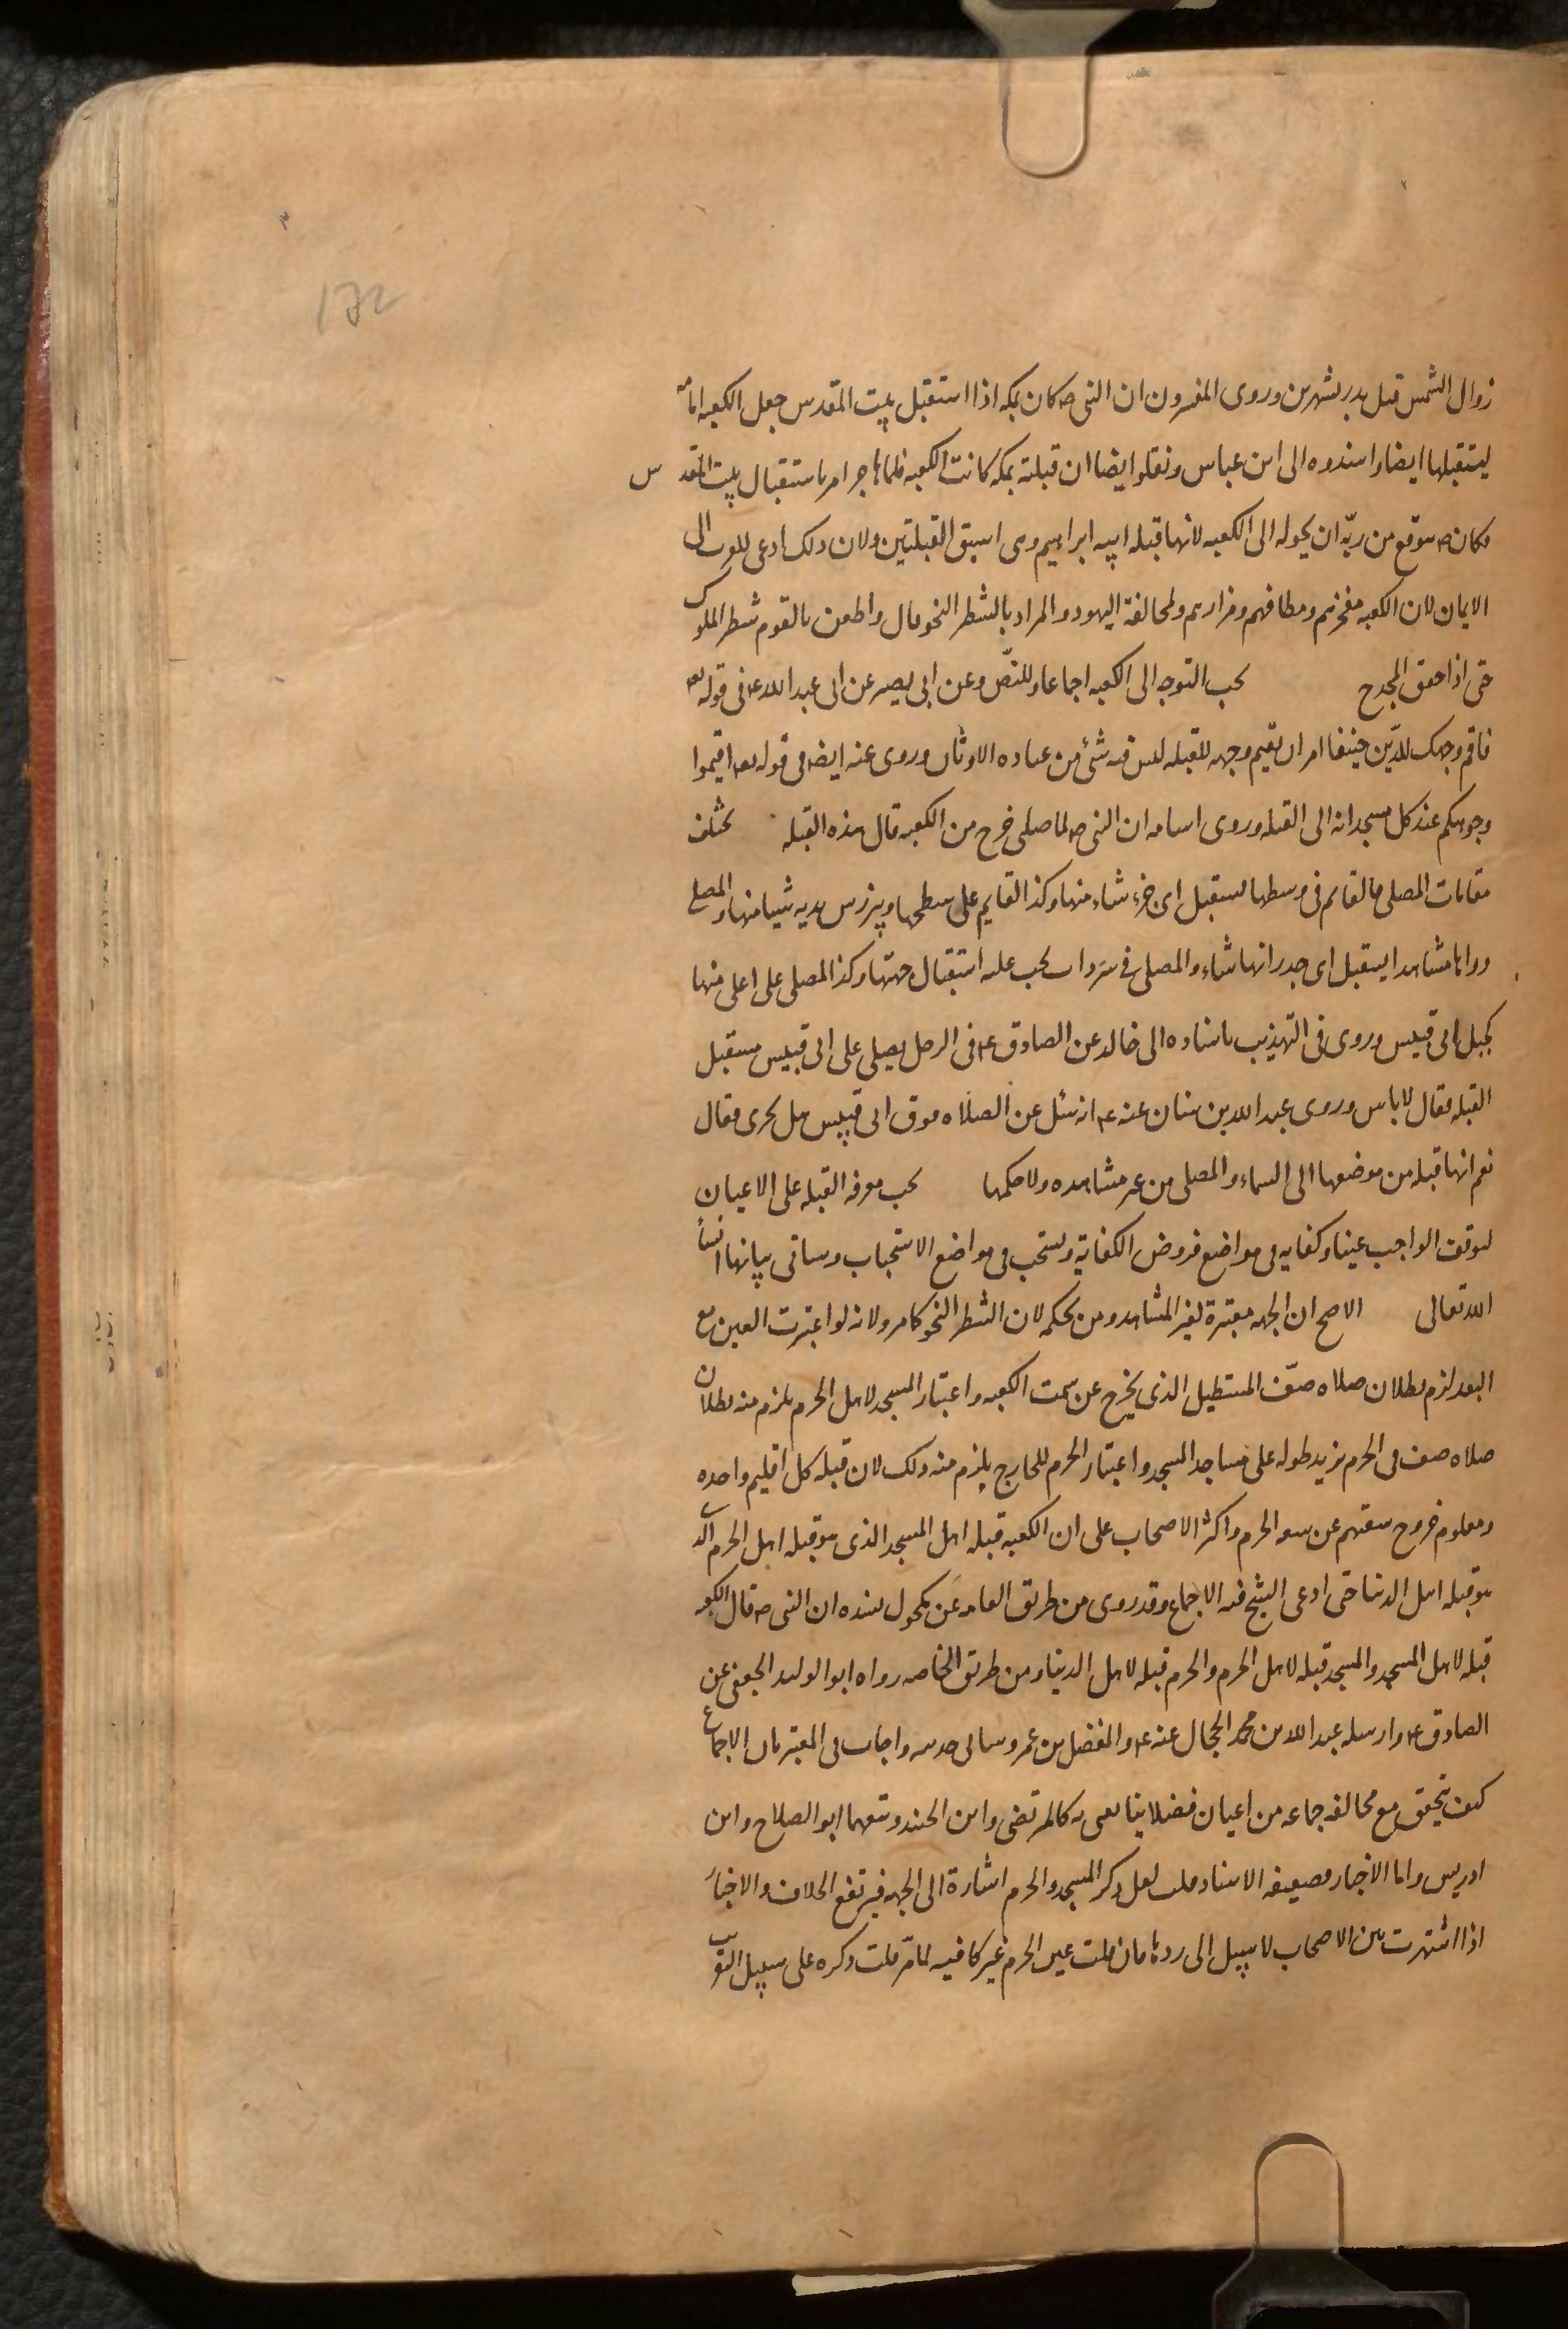 172
زوال الشمس قبل بدر بشهرين وروى المفسرون ان النبى ص كان بمكه اذا استقبل بيت المقدس جعل الكعبه امامه
ليستقبلها ايضا واسندوه الى ابن عباس ونقلوا ايضا ان قبلته بمكه كانت الكعبه فلما هاجر امر باستقبال بيت المقدس
وكان ص يتوقع من ربّه ان يحوله الى الكعبه لانها قبله ابيه ابراهيم وهى اسبق القبلتين ولان ذلك ادعى للعرب الى
الايمان لان الكعبه مفخرتهم ومطافهم ومزارهم ولمخالفة اليهود والمراد بالشطر النحو قال واطعن بالقوم شطر الملوك
حتى اذا خفق المجدح يجب التوجه الى الكعبه اجماعا وللنصّ وعن ابى بصير عن ابى عبد الله ع فى قوله تعه
فاقم وجهك للدّين حنيفا امر ان يقيم وجهه للقبله ليس فيه شئ من عباده الاوثان وروى عنه ايضا فى قوله تعه اقيموا
وجوهكم عند كل مسجد انه الى القبله وروى اسامه ان النبى ص لما صلى خرج من الكعبه قال هذه القبله يختلف
مقامات المصلى فالقايم فى وسطها يستقبل اى جزء شاء منها وكذا القايم على سطحها ويبرز بين يديه شيئا منها والمصلى
وراها مشاهدا يستقبل اى جدرانها شاء والمصلى فى سرداب يجب عليه استقبال جهتها وكذا المصلى على اعلى منها
كجبل ابى قبيس وروى فى التهذيب باسناده الى خالد عن الصادق ع فى الرجل يصلى على ابى قبيس مستقبل
القبله فقال لا باس وروى عبد الله بن سنان عنه ع انه سئل عن الصلاه فوق ابى قبيس هل يجزى فقال
نعم انها قبله من موضعها الى السماء والمصلى من غير مشاهده ولا حكمها يجب معرفه القبله على الاعيان
لتوقف الواجب عينا وكفايه فى مواضع فروض الكفاية ويستحب فى مواضع الاستحباب وساتى بيانها انشأ
الله تعالى الاصح ان الجهه معتبرة لغير المشاهد ومن بحكمه لان الشطر النحو كما مر ولانه لو اعتبرت العين مع
البعد لزم بطلان صلاه صفّ المستطيل الذى يخرج عن سمت الكعبه واعتبار المسجد لاهل الحرم يلزم منه بطلان
صلاه صف فى الحرم يزيد طوله على مساجد المسجد واعتبار الحرم للخارج يلزم منه ذلك لان قبله كل اقليم واحده
ومعلوم خروج سعتهم عن سعه الحرم واكثر الاصحاب على ان الكعبه قبله اهل المسجد الذى هو قبله اهل الحرم الذى
هو قبله اهل الدنيا حتى ادعى الشيخ فيه الاجماع وقد روى من طريق العامه عن مكحول بسنده ان النبى ص قال الكعبه
قبله لاهل المسجد والمسجد قبله لاهل الحرم والحرم قبله لاهل الدنيا ومن طريق الخاصه رواه ابو الوليد الجعفى عن
الصادق ع وارسله عبد الله بن محمد الحجال عنه ع والمفضل بن عمر وساتى حديثه واجاب فى المعتبر بان الاجماع
كيف يتحقق مع مخالفه جماعه من اعيان فضلاينا يعنى به كالمرتضى وابن الجنيد وتبعهما ابو الصلاح وابن
ادريس واما الاخبار فضعيفه الاسناد قلت لعل ذكر المسجد والحرم اشارة الى الجهه فيرتفع الخلاف والاخبار
اذا اشتهرت بين الاصحاب لا سبيل الى ردها فان قلت عين الحرم غير كافيه لما مرّ قلت ذكره على سبيل التقريب